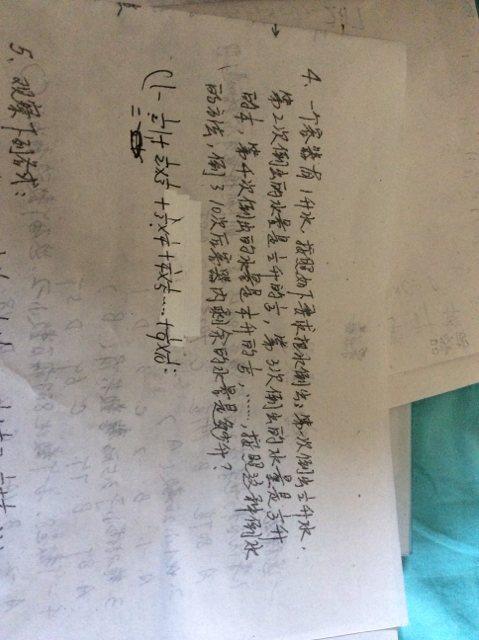 4、一个容器有1升水,按照如下要求把水倒出:第一次倒出1/2升水,
第2次倒出的水量是1/2升的1/3,第3次倒出的水量是1/3升
的1/4,第4次倒出的水量是1/4升的1/5,……,按照这种倒水
的方法,倒了10次后容器内剩余的水量是多少升?
5、观察下列各式: